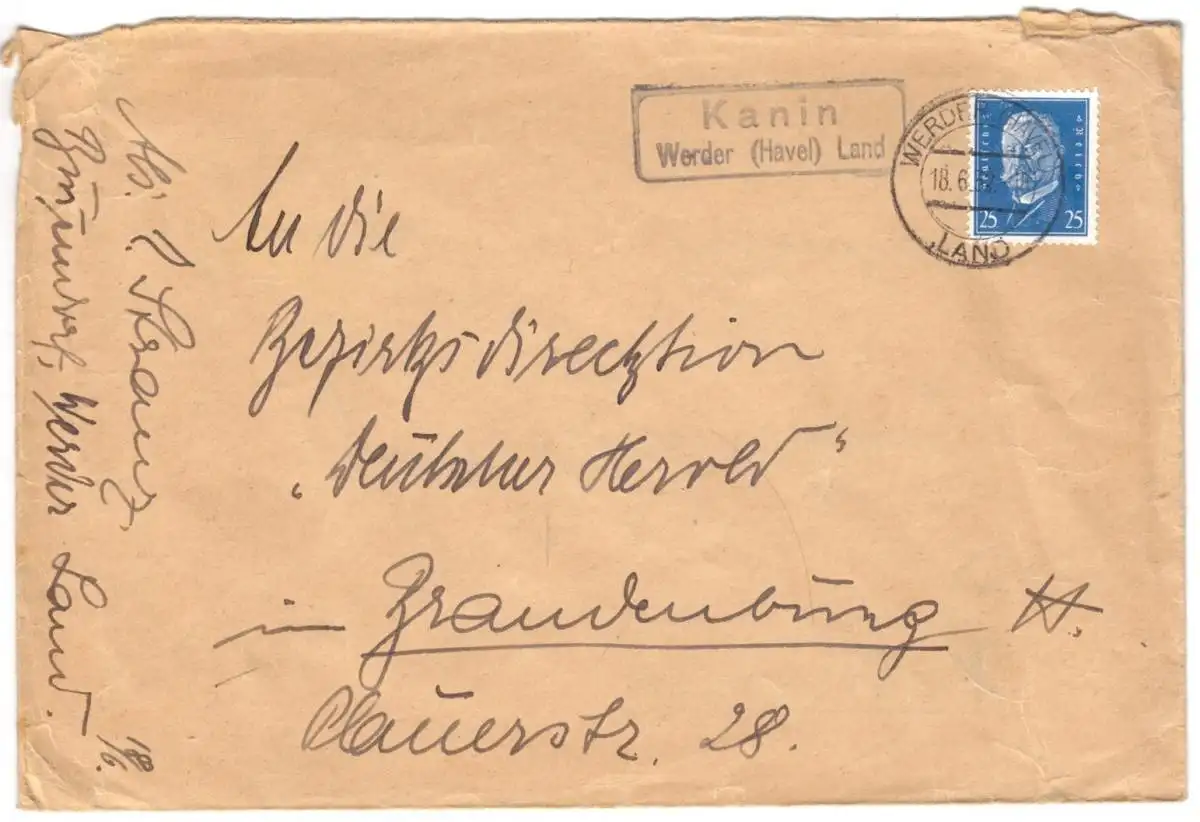 Kanin
Werder (Havel) Land
WERDER (HAVEL)
18.6.
LAND
Deutsches Reich
25 25
An die
Bezirksdirecktion
„Deutscher Herold“
in Brandenburg H.
Plauerstr. 28.
Ab:
Werder Land.
18/6.